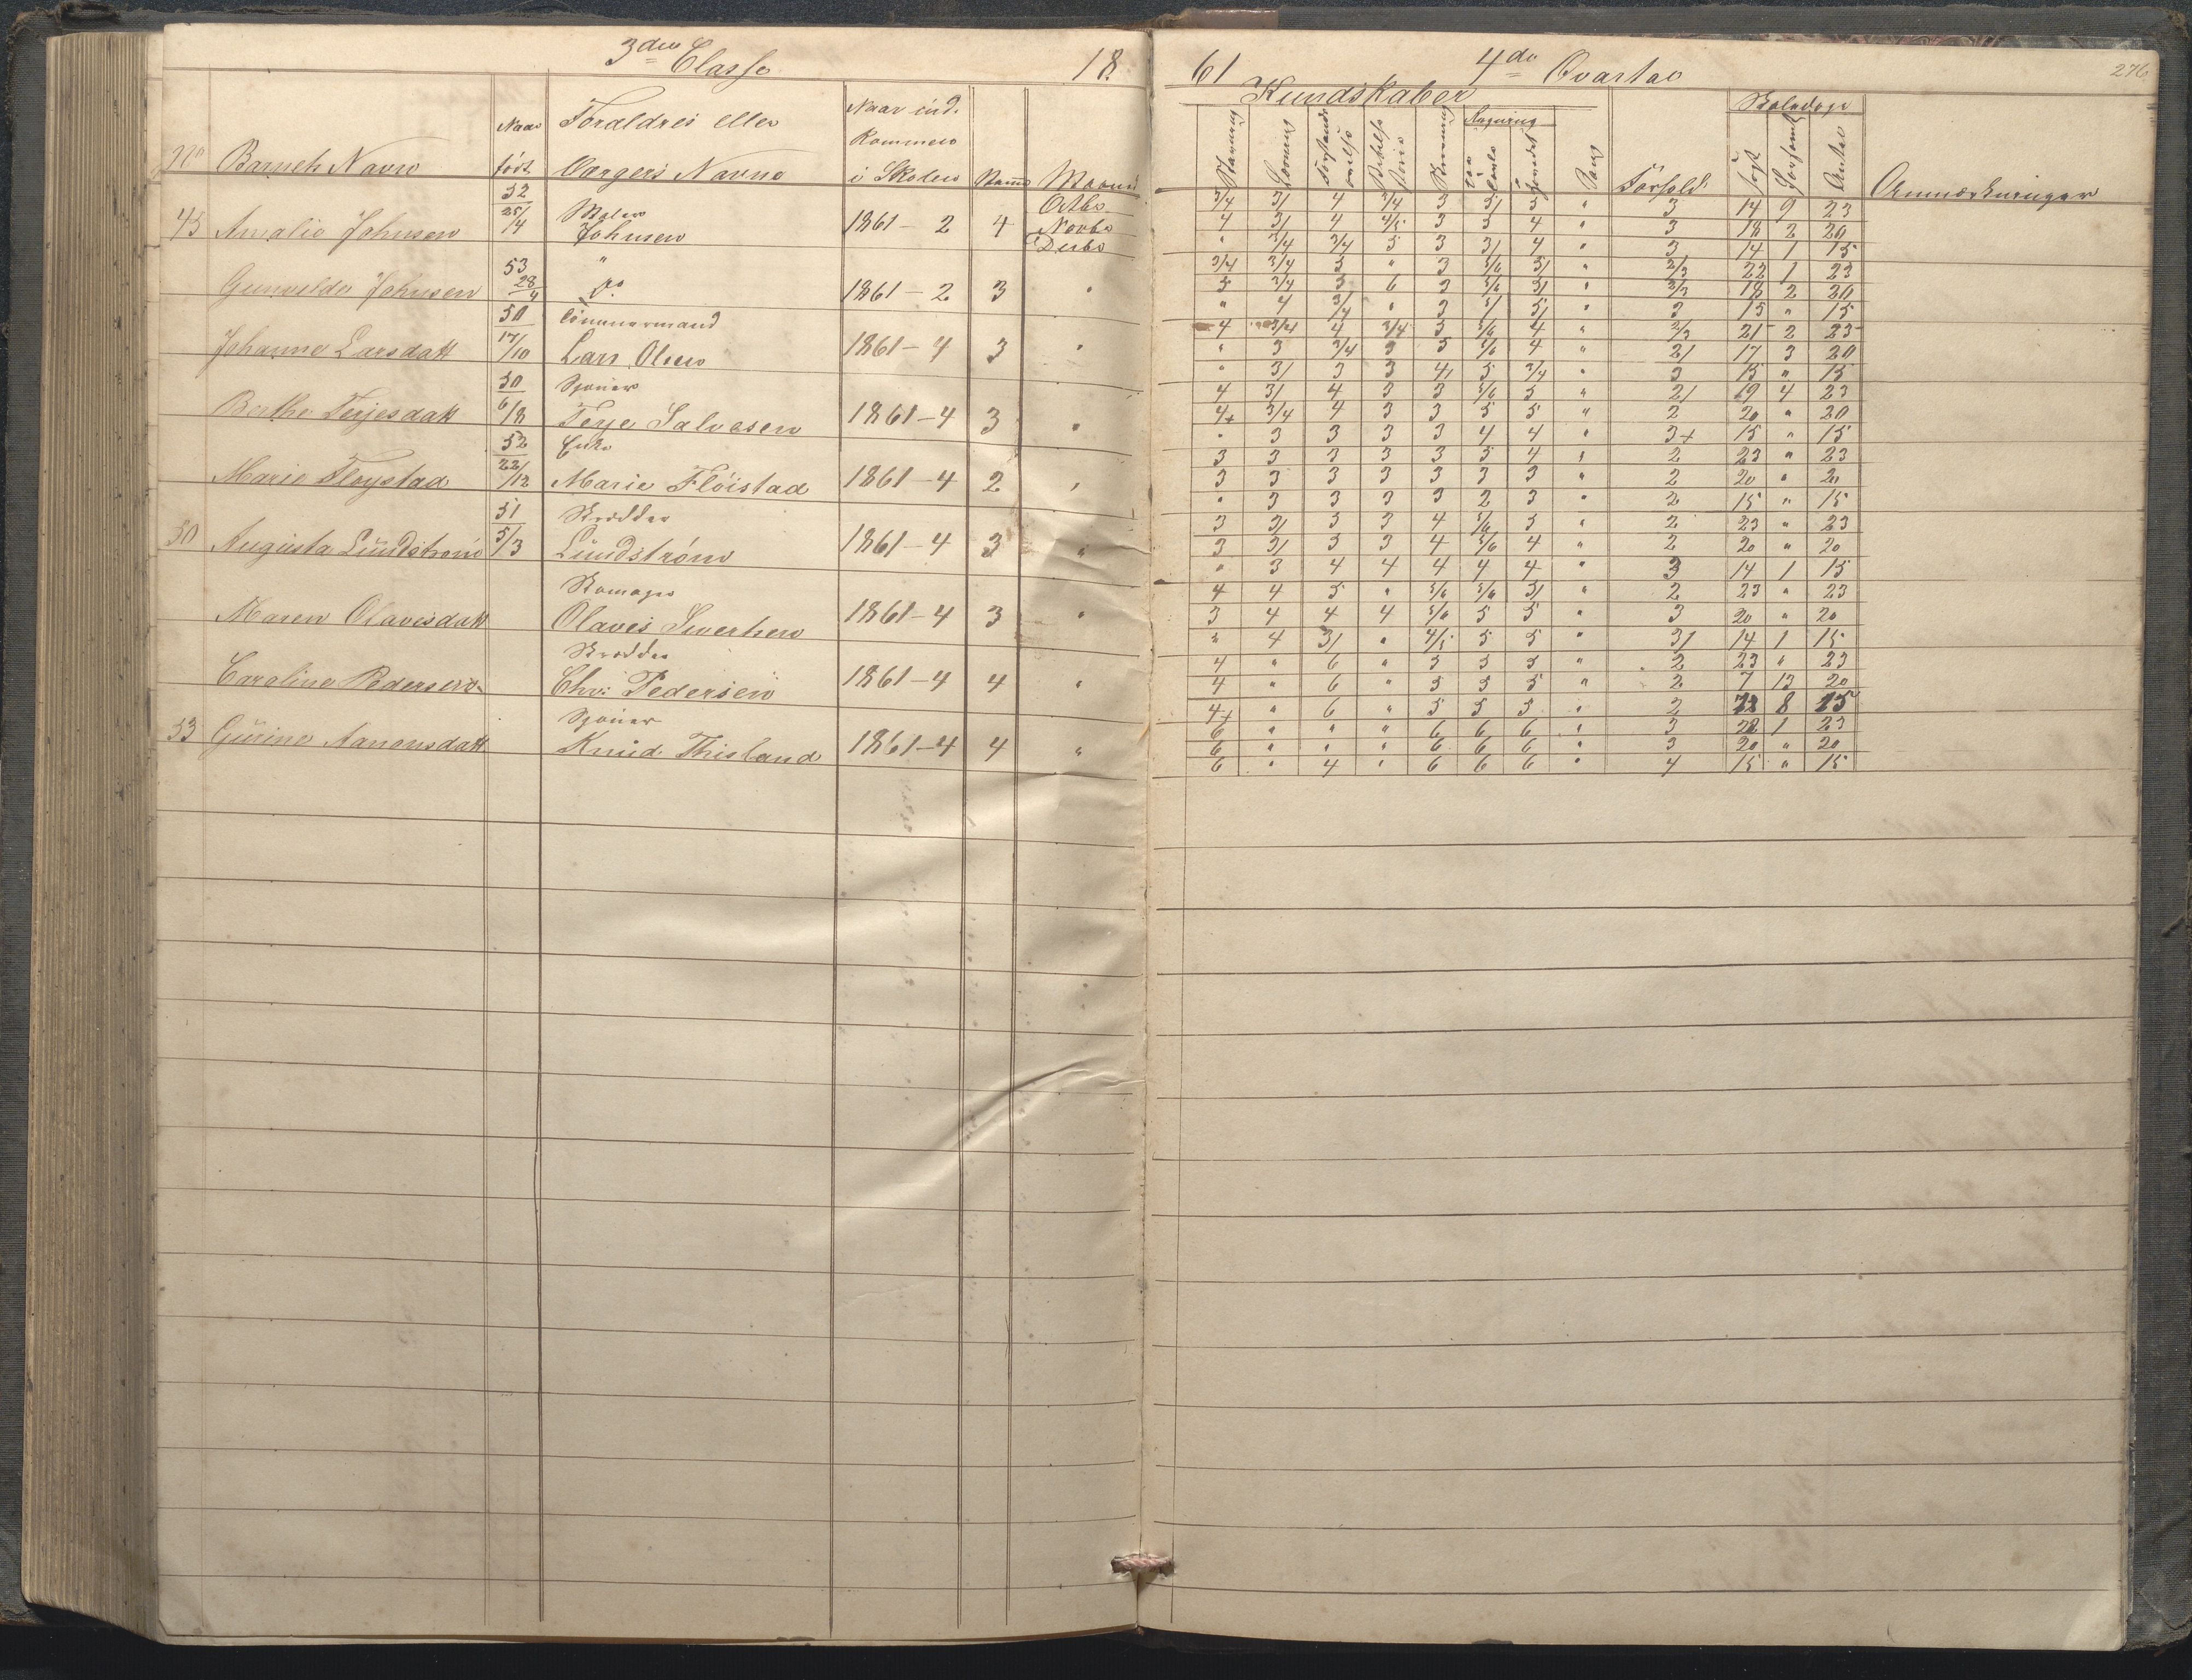 3die Classe 18
No Barnets Navn Naar født Forældres eller Værgers Navne Naar ind. kommen i Skolen Maaned
45 Amalie Johnsen 52 25/4 Maler Johnsen 1861 - 2 4 Octbr Novbr Decbr
Gunvilda Johnsen 53 28/4 " Do 1861 - 2 3 "
Johanne Larsdatt 50 17/10 Tömmermand Lars Olsen 1861 - 4 3 "
Berthe Terjesdatt 50 6/8 Sjömand Terje Salvesen 1861 - 4 3 "
Marie Floystad 52 22/12 Enke Marie Flöistad 1861 - 4 2 "
50 Augusta Lündström 51 5/3 Skrædder Lündström 1861 - 4 3 "
Maren Olavesdatt Skomager Olaves Sivertsen 1861 - 4 3 "
Caroline Pedersen Skrædder Chr: Pedersen 1861 - 4 4 "
53 Gürine Aanonsdatt Knud Thisland 1861 - 4 4 "
61 4de Qvartal 276
Kundskaber
Regning Skoledage
Stavning Læsning Religion Skrivning Sang Forhold Søgt Forsømt Antal Anmærkninger
3/4 3/ 4 3/4 3 5/ 5 " 3 14 9 23
4 3/ 4 4/5 3 5 4 " 3 18 2 20
" 3/4 3/4 5 3 3/ 4 " 3 14 1 15
3/4 3/4 5 " 3 5/6 5/ " 2/3 22 1 23
5 3/4 5 6 3 5/6 5/ " 2/3 18 2 20
" 4 3/4 " 3 5/ 5/ " 3 15 " 15
4 3/4 4 3/4 5 5/6 4 " 2/3 21 2 23
" 3 3/4 3 5 5/6 4 " 2/ 17 3 20
" 3/ 3 3 4/ 5 3/4 " 3 15 " 15
4 3/ 4 3 3 5/6 5 " 2/ 19 4 23
4+ 3/4 4 3 3 5 5 " 2 20 " 20
" 3 3 3 3 4 4 " 3+ 15 " 15
3 3 3 3 3 5 4 " 2 23 " 23
3 3 3 3 3 3 3 " 2 20 " 20
" 3 3 3 3 2 3 " 2 15 " 15
3 3/ 3 3 4 5/6 5 " 2 23 " 23
3 3/ 3 3 4 5/6 4 " 2 20 " 20
" 3 4 4 4 4 4 " 3 14 1 15
4 4 5 " 5/6 5/6 5/ " 2 23 " 23
3 4 4 4 5/6 5 5 " 3 20 " 20
" 4 3/ " 4/5 5 5 " 3/ 14 1 15
4 " 6 " 5 5 5 " 2 23 " 23
4 " 6 " 5 5 5 " 2 7 13 20
4+ " 6 " 5 5 5 " 2 8 15
6 " " " 6 6 6 " 3 22 1 23
6 " " " 6 6 6 " 3 20 " 20
6 " 4 " 6 6 6 " 4 15 " 15